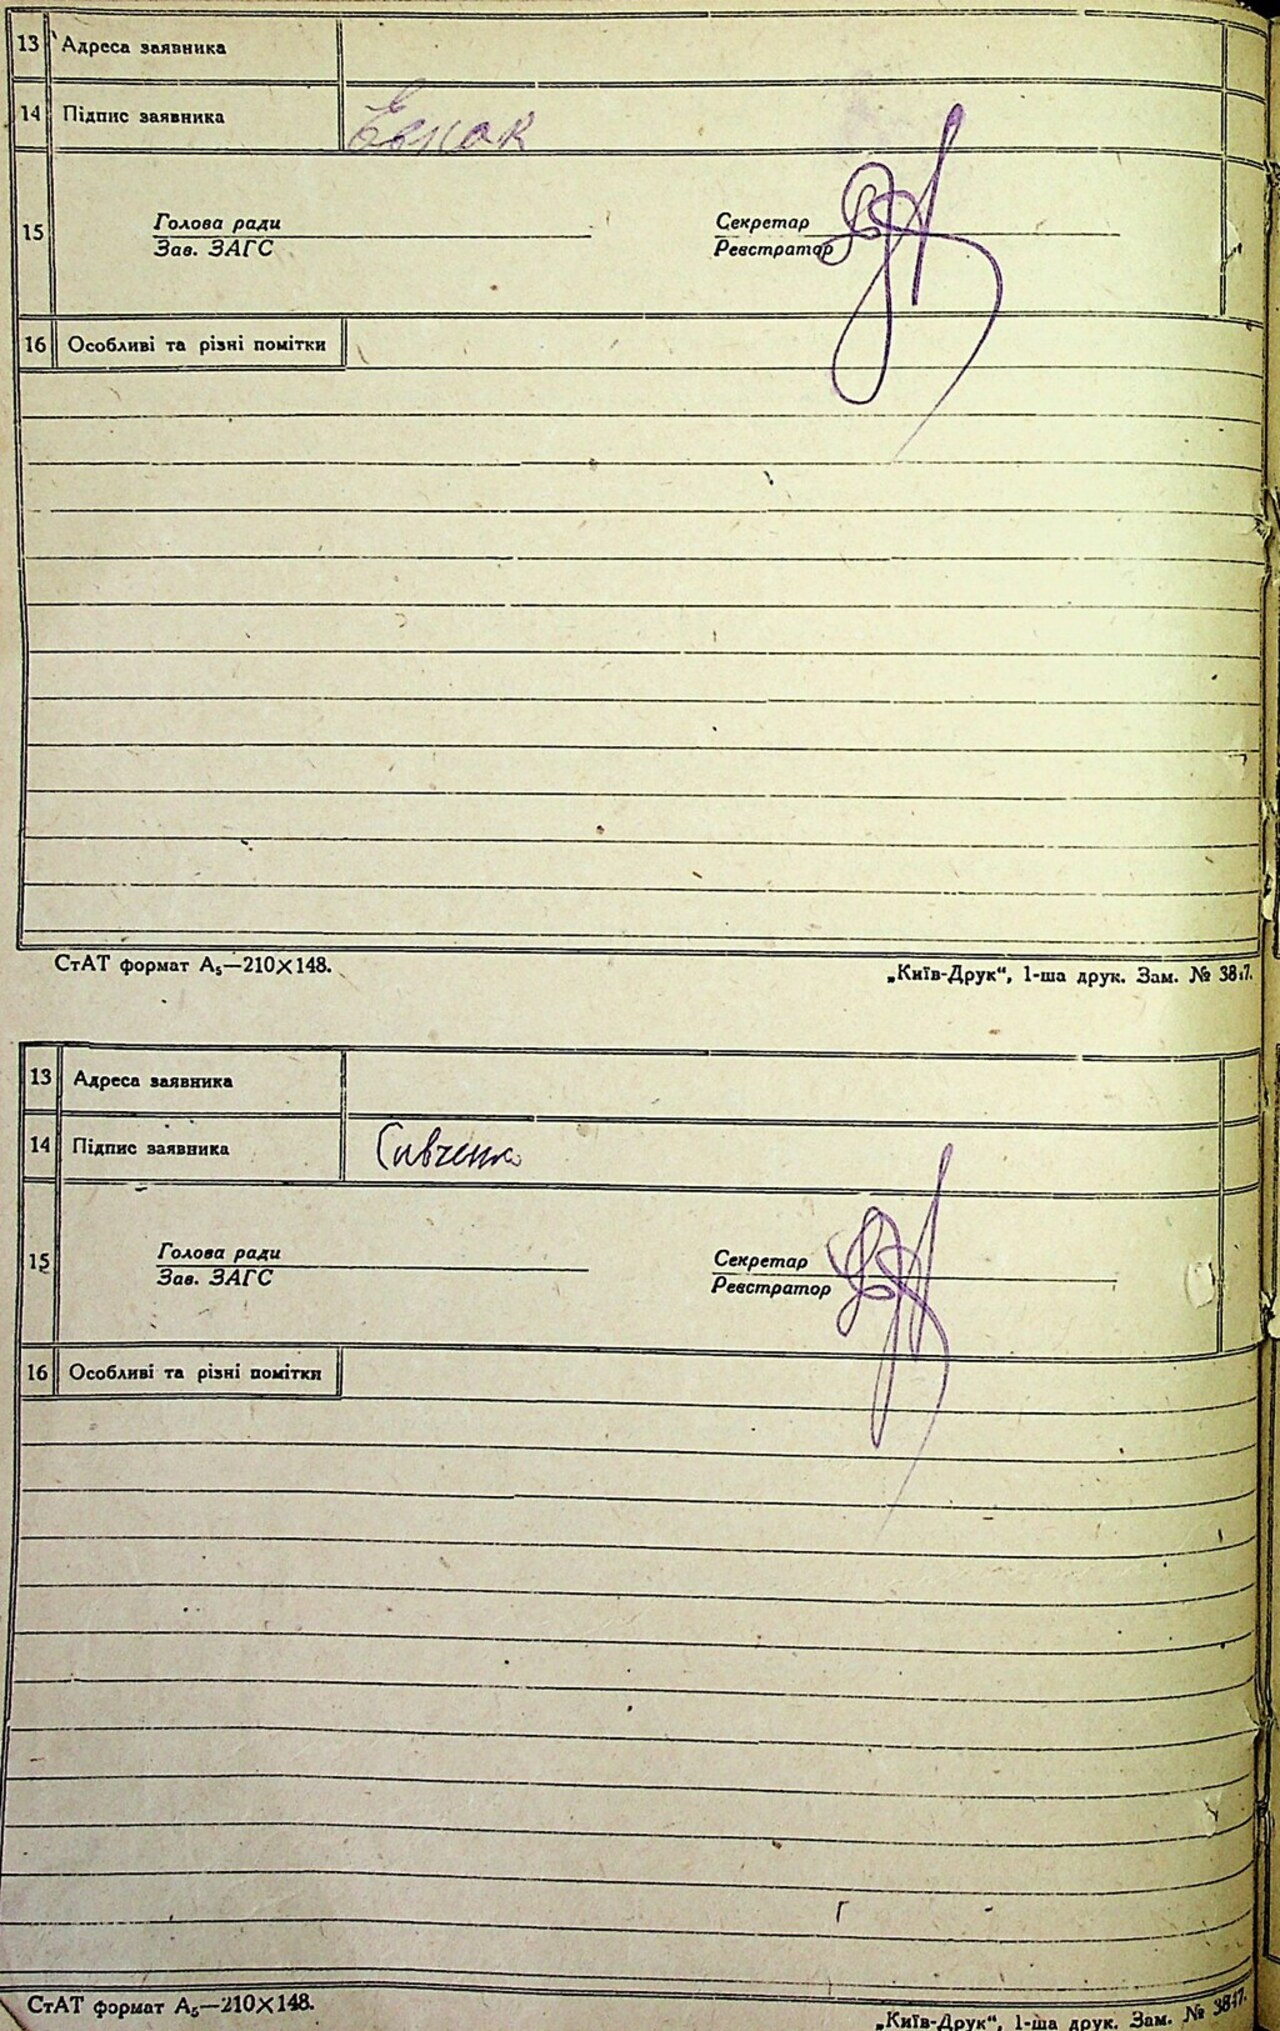 13 Адреса заявника
14 Підпис заявника
15 Голова ради Секретар
Зав. ЗАГС Реєстратор
16 Особливі та різні помітки
СтАТ формат А₅—210×148. „Київ-Друк“, 1-ша друк. Зам. №
13 Адреса заявника
14 Підпис заявника Савченко
15 Голова ради Секретар
Зав. ЗАГС Реєстратор
16 Особливі та різні помітки
СтАТ формат А₅—210×148. „Київ-Друк“, 1-ша друк. Зам. №